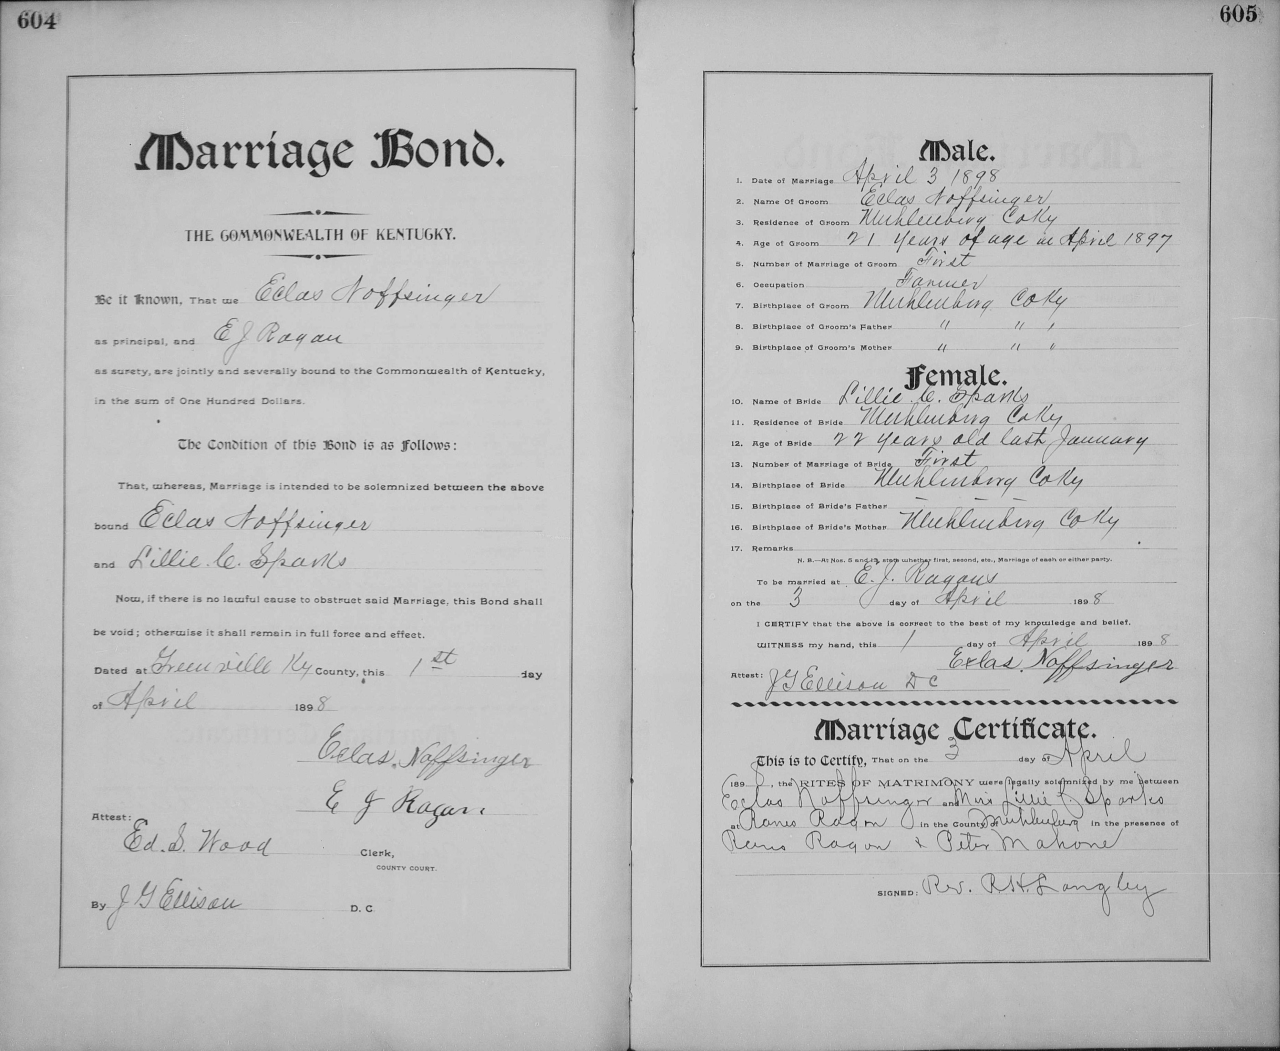 604
Marriage Bond.
THE COMMONWEALTH OF KENTUCKY.
Be it Known, That we Eclas Noffsinger
as principal, and E J Ragan
as surety, are jointly and severally bound to the Commonwealth of Kentucky,
in the sum of One Hundred Dollars.
The Condition of this Bond is as Follows:
That, whereas, Marriage is intended to be solemnized between the above
bound Eclas Noffsinger
and Lillie C. Sparks
Now, if there is no lawful cause to obstruct said Marriage, this Bond shall
be void; otherwise it shall remain in full force and effect.
Dated at Greenville Ky County, this 1st day
of April 1898
Eclas Noffsinger
E J Ragan.
Attest:
Ed. S. Wood Clerk,
COUNTY COURT.
By J G Ellison D. C.
605
Male.
1. Date of Marriage April 3 1898
2. Name Of Groom Eclas Noffsinger
3. Residence of Groom Muhlenberg Co Ky
4. Age of Groom 21 years of age in April 1897
5. Number of Marriage of Groom First
6. Occupation Farmer
7. Birthplace of Groom Muhlenberg Co Ky
8. Birthplace of Groom's Father " " "
9. Birthplace of Groom's Mother " " "
Female.
10. Name of Bride Lillie C. Sparks
11. Residence of Bride Muhlenberg Co Ky
12. Age of Bride 22 years old last January
13. Number of Marriage of Bride First
14. Birthplace of Bride Muhlenberg Co Ky
15. Birthplace of Bride's Father — — —
16. Birthplace of Bride's Mother Muhlenberg Co Ky
17. Remarks
N. B.—At Nos. 5 and 13, state whether first, second, etc., Marriage of each or either party.
To be married at E. J. Ragans
on the 3 day of April 1898
I CERTIFY that the above is correct to the best of my knowledge and belief.
WITNESS my hand, this 1 day of April 1898
Eclas Noffsinger
Attest: J G Ellison D C
Marriage Certificate.
This is to Certify, That on the 3 day of April
1898, the RITES OF MATRIMONY were legally solemnized by me between
Eclas Noffsinger and Miss Lillie C. Sparks
at Ragon in the County of Muhlenberg in the presence of
Ragon & Peter Mahone
SIGNED: Rev. R. H. Langley